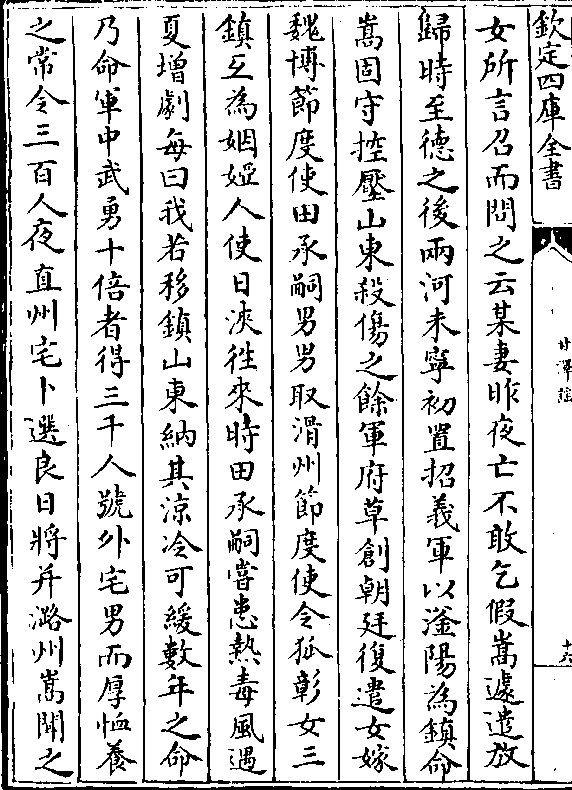 欽定四庫全書
甘澤謠
女所言召而問之云某妻昨夜亡不敢乞假嵩遽遣放
歸時至德之後兩河未寧初置招義軍以滏陽為鎮命
嵩固守控壓山東殺傷之餘軍府草創朝廷復遣女嫁
魏博節度使田承嗣男男取滑州節度使令狐彰女三
鎮互為姻婭人使日浹徃來時田承嗣嘗患熱毒風遇
夏增劇每曰我若移鎮山東納其涼冷可緩數年之命
乃命軍中武勇十倍者得三千人號外宅男而厚恤養
之常令三百人夜直州宅卜選良日將并潞州嵩聞之